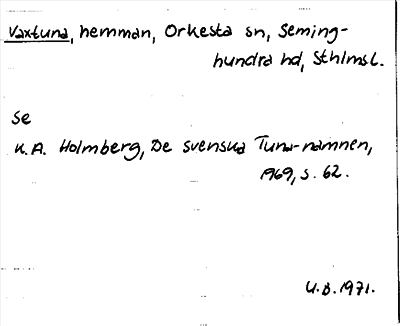 Vaxtuna, hemman, Orkesta sn, Seming-
hundra hd, Sthlmsl.
Se
K.A. Holmberg, De svenska Tuna-namnen,
1969, s. 62.
U.B. 1971.